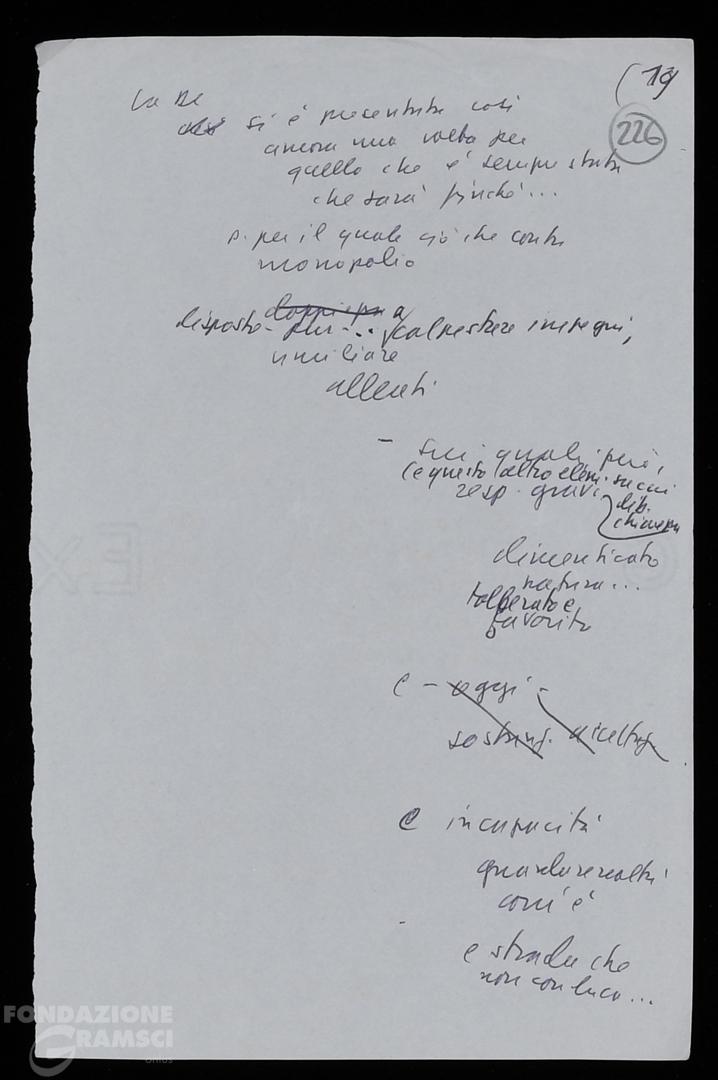 (19
226
La DC
si è presentata così
ancora una volta per
quello che è sempre stata
che sarà finché...
p. per il quale ciò che conta
monopolio
disposto - pur ... a calpestare impegni,
umiliare
alleati
- sui quali però,
(e questo altro elem. su cui
resp. gravi
dimenticato
natura...
tollerato e
favorito
e - oggi -
sostung.
e incapacità
guardare realtà
com'è
e strada che
non conduca...
FONDAZIONE
GRAMSCI
onlus